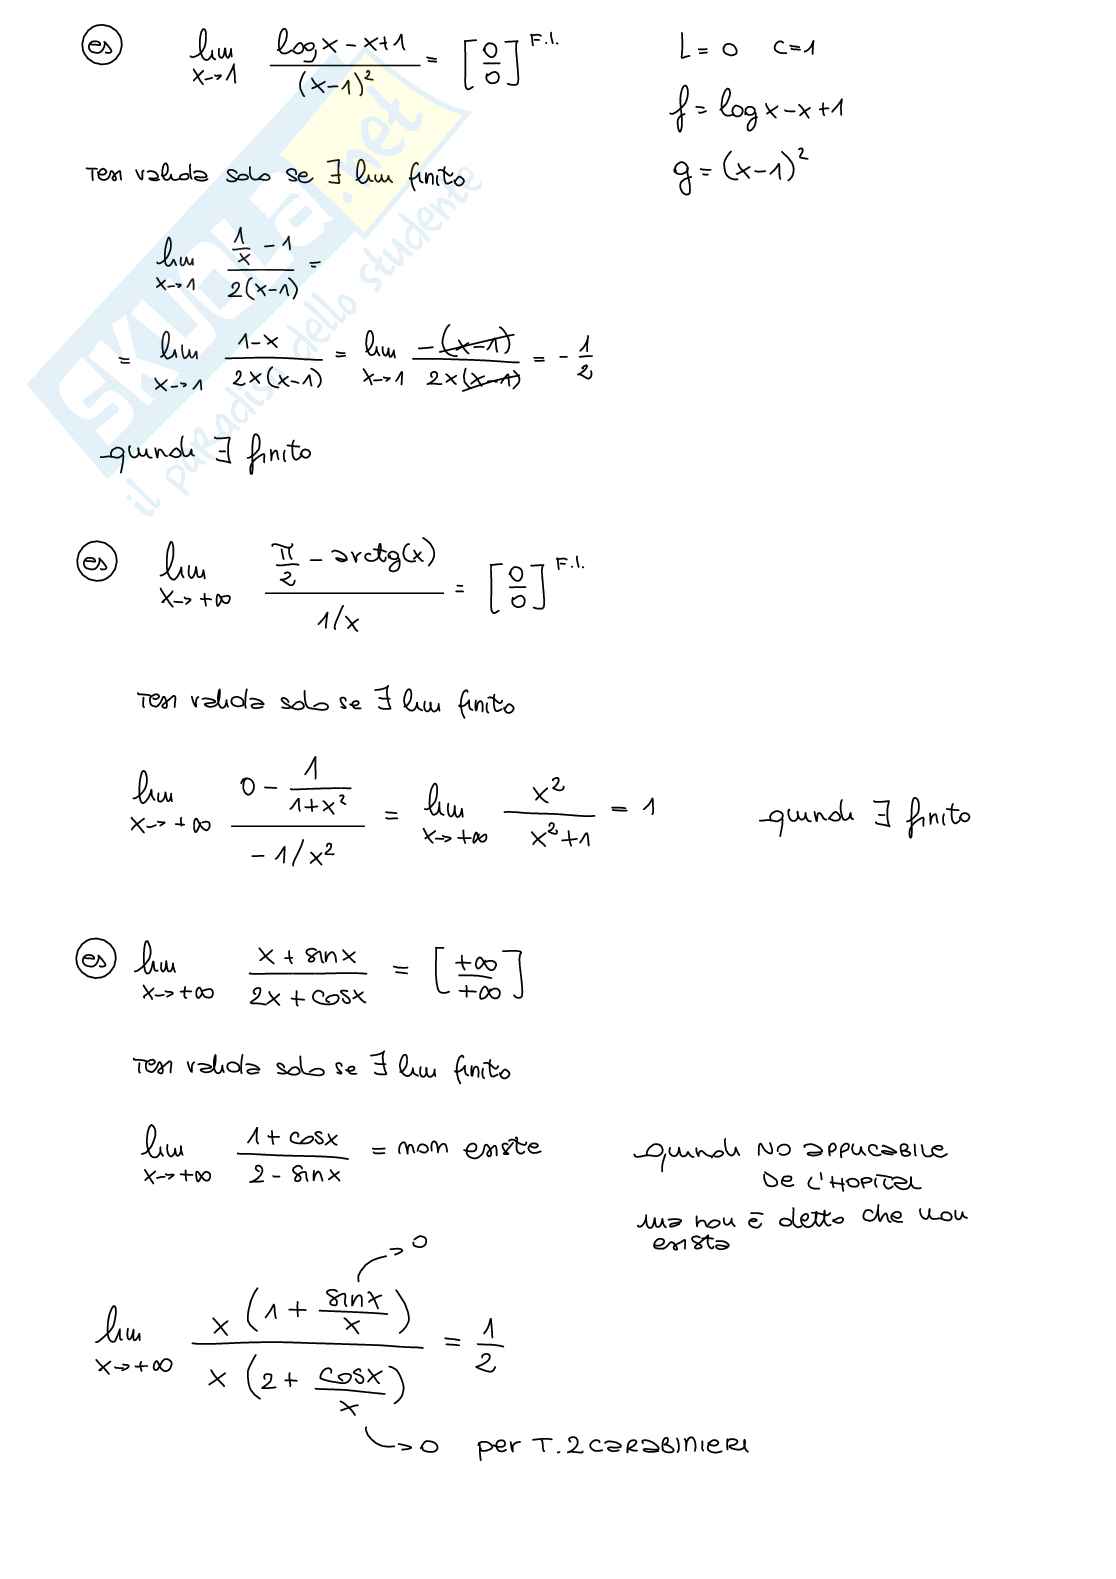 es lim x→1 (log x − x + 1)/(x−1)² = [0/0] F.I. L = 0 c = 1
f = log x − x + 1
g = (x−1)²
Teo valida solo se ∃ lim finito
lim x→1 (1/x − 1)/(2(x−1)) =
= lim x→1 (1−x)/(2x(x−1)) = lim x→1 −(x−1)/(2x(x−1)) = −1/2
quindi ∃ finito
SKUOLA.net
il paradiso dello studente
es lim x→+∞ (π/2 − arctg(x))/(1/x) = [0/0] F.I.
Teo valida solo se ∃ lim finito
lim x→+∞ (0 − 1/(1+x²))/(−1/x²) = lim x→+∞ x²/(x²+1) = 1 quindi ∃ finito
es lim x→+∞ (x + sin x)/(2x + cosx) = [+∞/+∞]
Teo valida solo se ∃ lim finito
lim x→+∞ (1 + cosx)/(2 − sinx) = non esiste quindi NO APPLICABILE
DE L'HOPITAL
ma non è detto che non
esista
→0
lim x→+∞ x(1 + sinx/x)/x(2 + cosx/x) = 1/2
→0 per T. 2 CARABINIERI